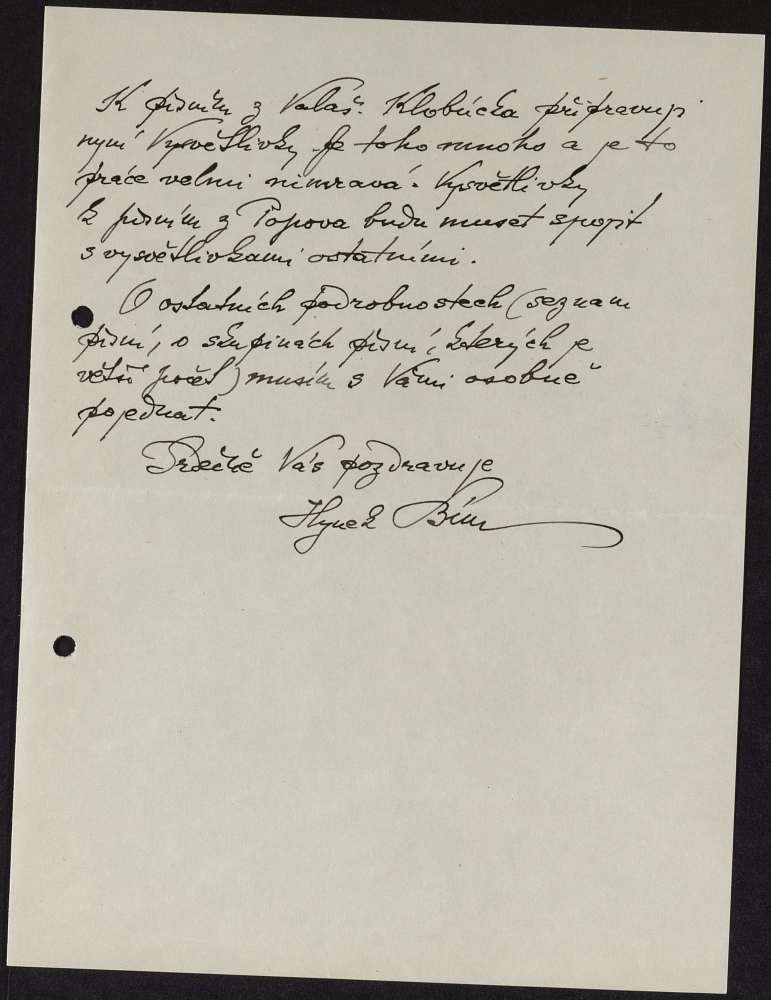 K písním z Valaš. Klobúcka připravuji
nyní Vysvětlivky. Je toho mnoho a je to
práce velmi nimravá. Vysvětlivky
k písním z Popova budu muset spojit
s vysvětlivkami ostatními.
O ostatních podrobnostech (seznam
písní, o skupinách písní, kterých je
větší počet) musím s Vámi osobně
pojednat.
Srdečně Vás pozdravuje
Hynek Bím